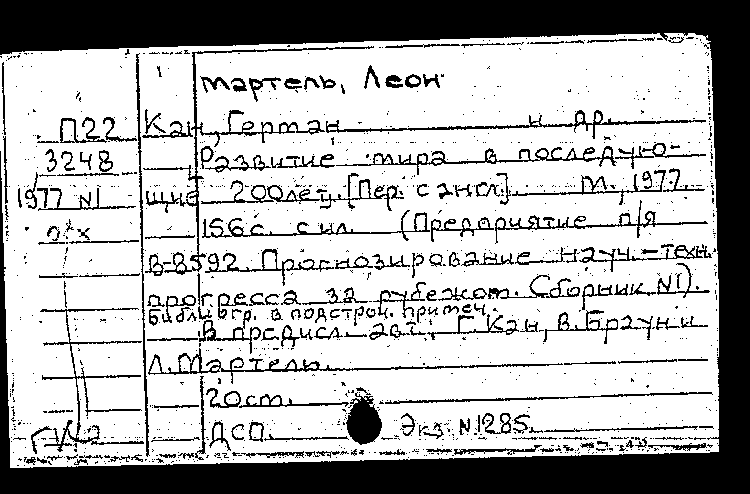 Мартель, Леон
П22 Кан, Герман и др.
3248 Развитие мира в последую-
1977 N1 щие 200 лет. [Пер. с англ]. М., 1977.
156 с. с ил. (Предприятие п/я
В-8592. Прогнозирование науч.-техн.
прогресса за рубежом. Сборник N1).
Библиогр. в подстроч. примеч.
В предисл. авт.: Г. Кан, В. Браун и
Л. Мартель.
20 cm.
ДСП. Экз. N 1285.